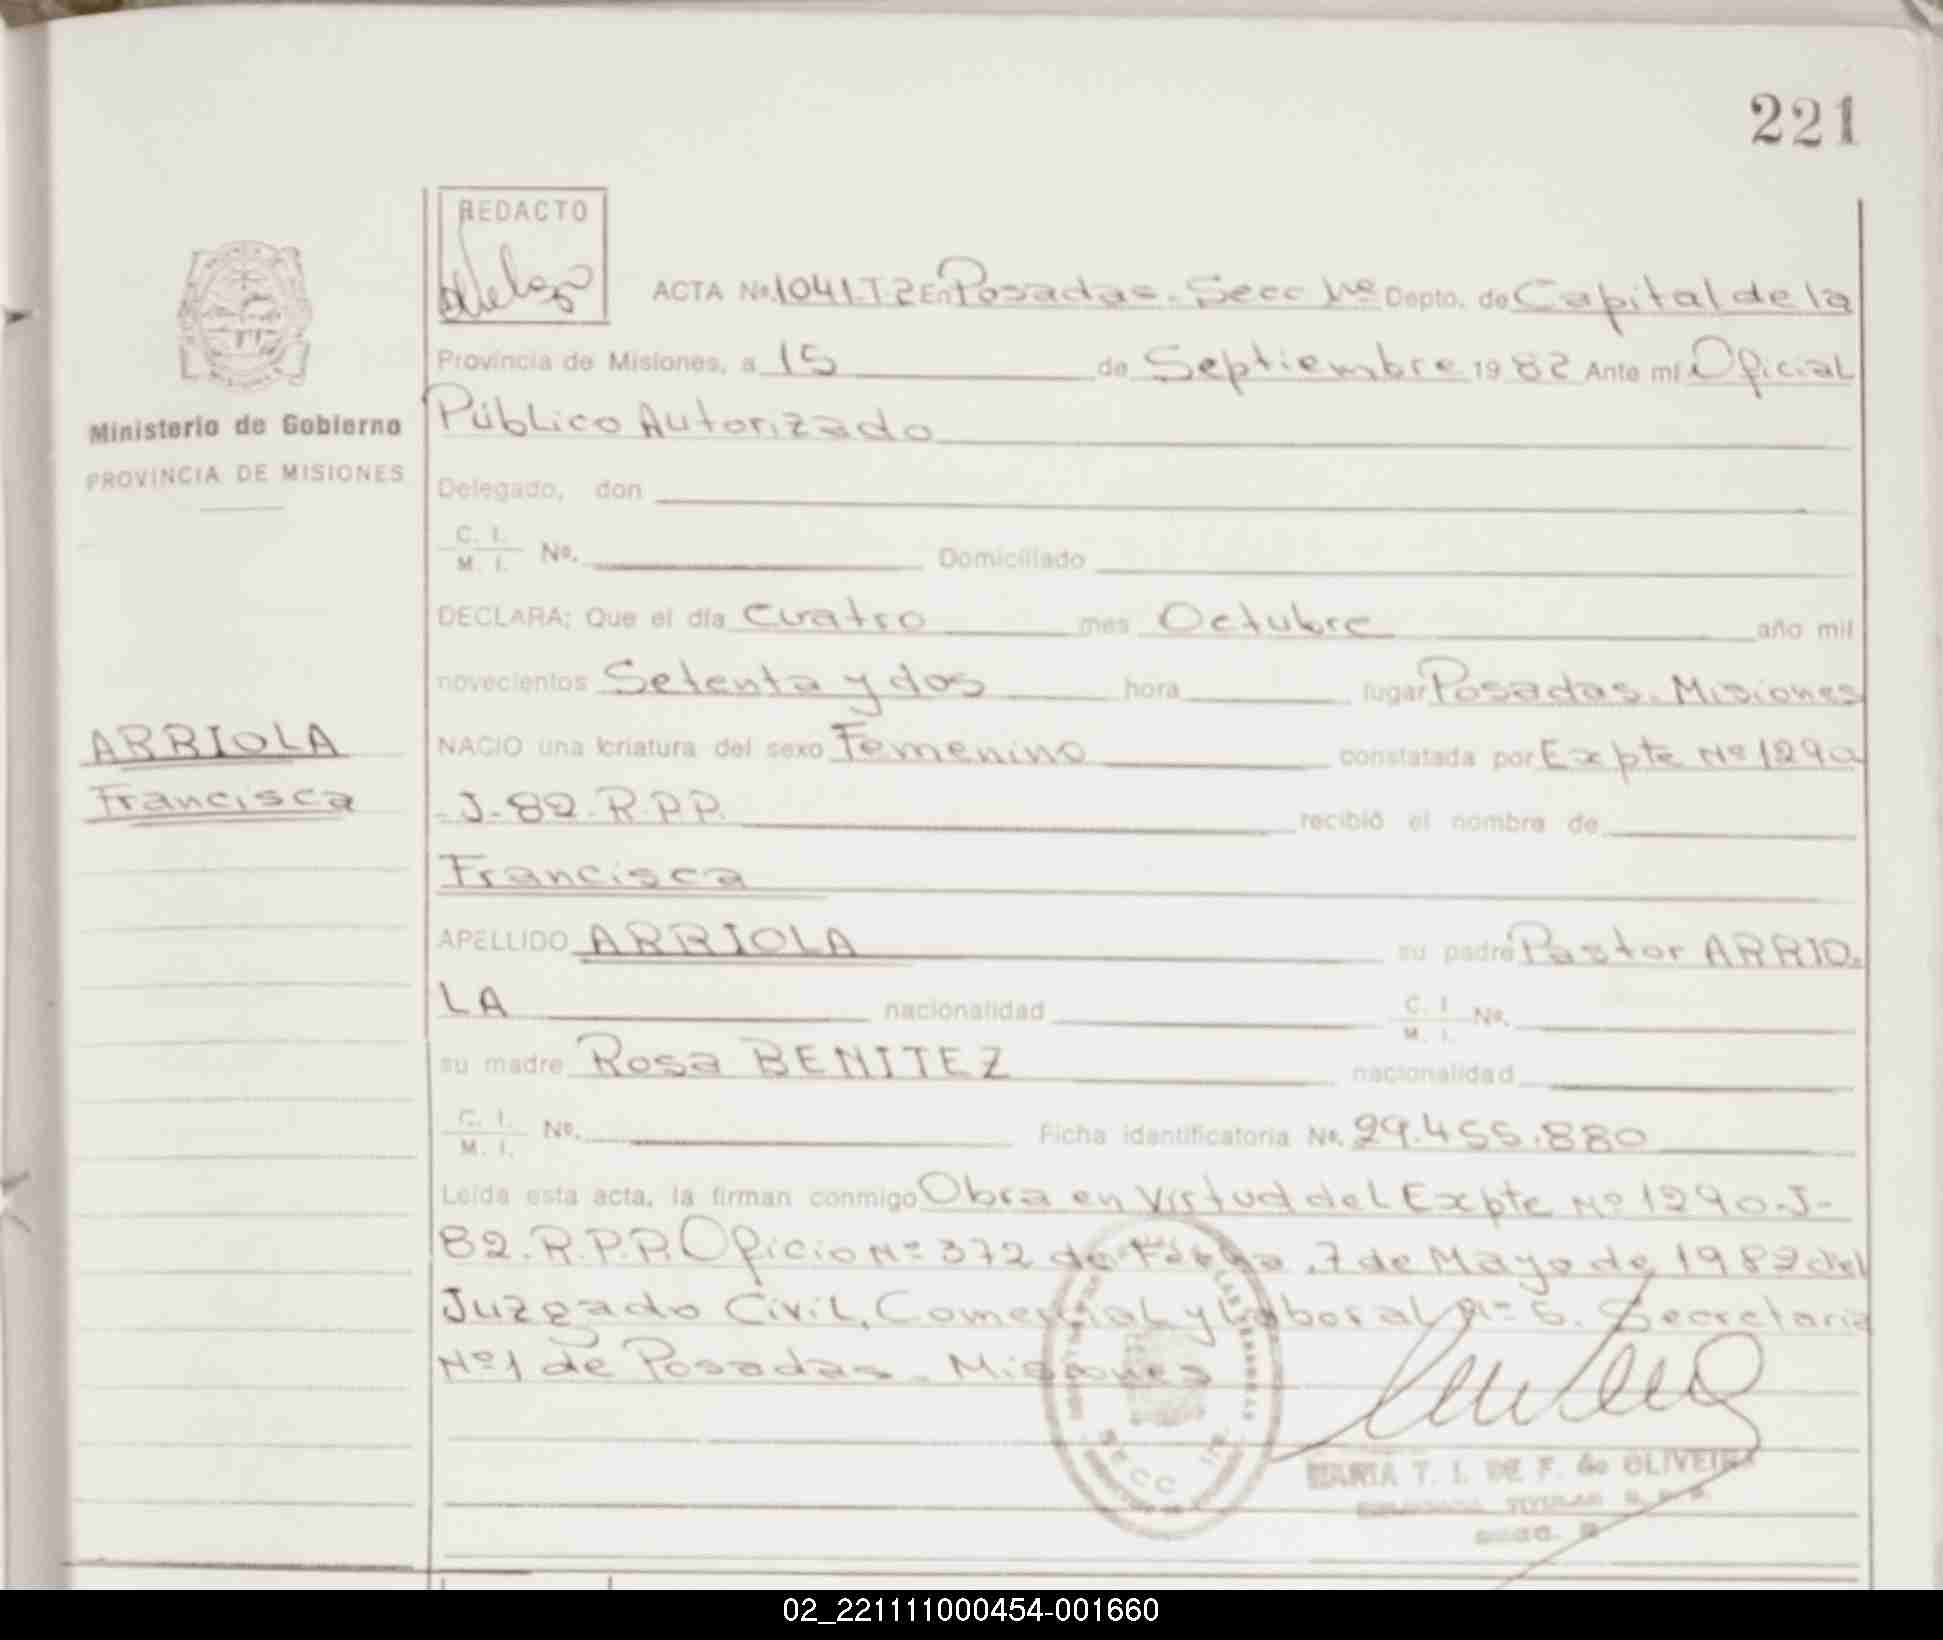 221
REDACTO
ACTA No. 1041.T.2 En Posadas. Secc 1ra Depto. de Capital de la
Provincia de Misiones, a 15 de Septiembre 1982 Ante mí Oficial
Público Autorizado
Ministerio de Gobierno
PROVINCIA DE MISIONES
Delegado, don
C. I.
M. I. No. Domiciliado
DECLARA; Que el día Cuatro mes Octubre año mil
novecientos Setenta y dos hora lugar Posadas. Misiones
ARRIOLA
Francisca
NACIO una criatura del sexo Femenino constatada por Expte Nº 1290
- J-82. R.P.P. recibió el nombre de
Francisca
APELLIDO ARRIOLA su padre Pastor ARRIO-
LA nacionalidad C. I. M. I. No.
su madre Rosa BENITEZ nacionalidad
C. I.
M. I. No. Ficha identificatoria No. 29.455.880
Leída esta acta, la firman conmigo Obra en Virtud del Expte Nº 1290-J-
82. R.P.P. Oficio Nº 372 de Fecha 7 de Mayo de 1982 del
Juzgado Civil, Comercial y Laboral Nº 5. Secretaria
Nº 1 de Posadas. Misiones
SECC
MARIA T. I. DE F. de OLIVEIRA
02_221111000454-001660